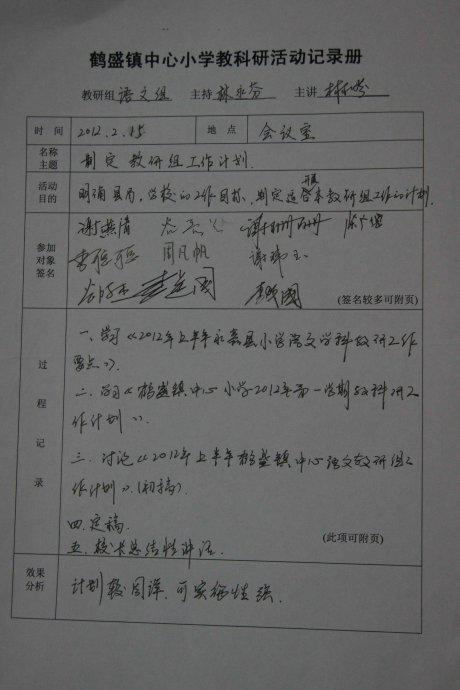 鹤盛镇中心小学教科研活动记录册
教研组 语文组 主持 林永芬 主讲
时 间 2012.2.15 地 点 会议室
名称主题 制定教研组工作计划.
活动目的 明确县局,学校的工作目标,制定适合本教研组工作的计划.
参加对象签名 谢燕清
周凡帆 谢
(签名较多可附页)
过程记录
一、学习《2012年上半年永嘉县小学语文学科教研工作
要点》.
二、学习《鹤盛镇中心小学2012年第一学期教科研工
作计划》.
三、讨论《2012年上半年鹤盛镇中心语文教研组工
作计划》.(初稿).
四.定稿.
(此项可附页)
五、校长总结性讲话.
效果分析 计划较周详,可实施性强.